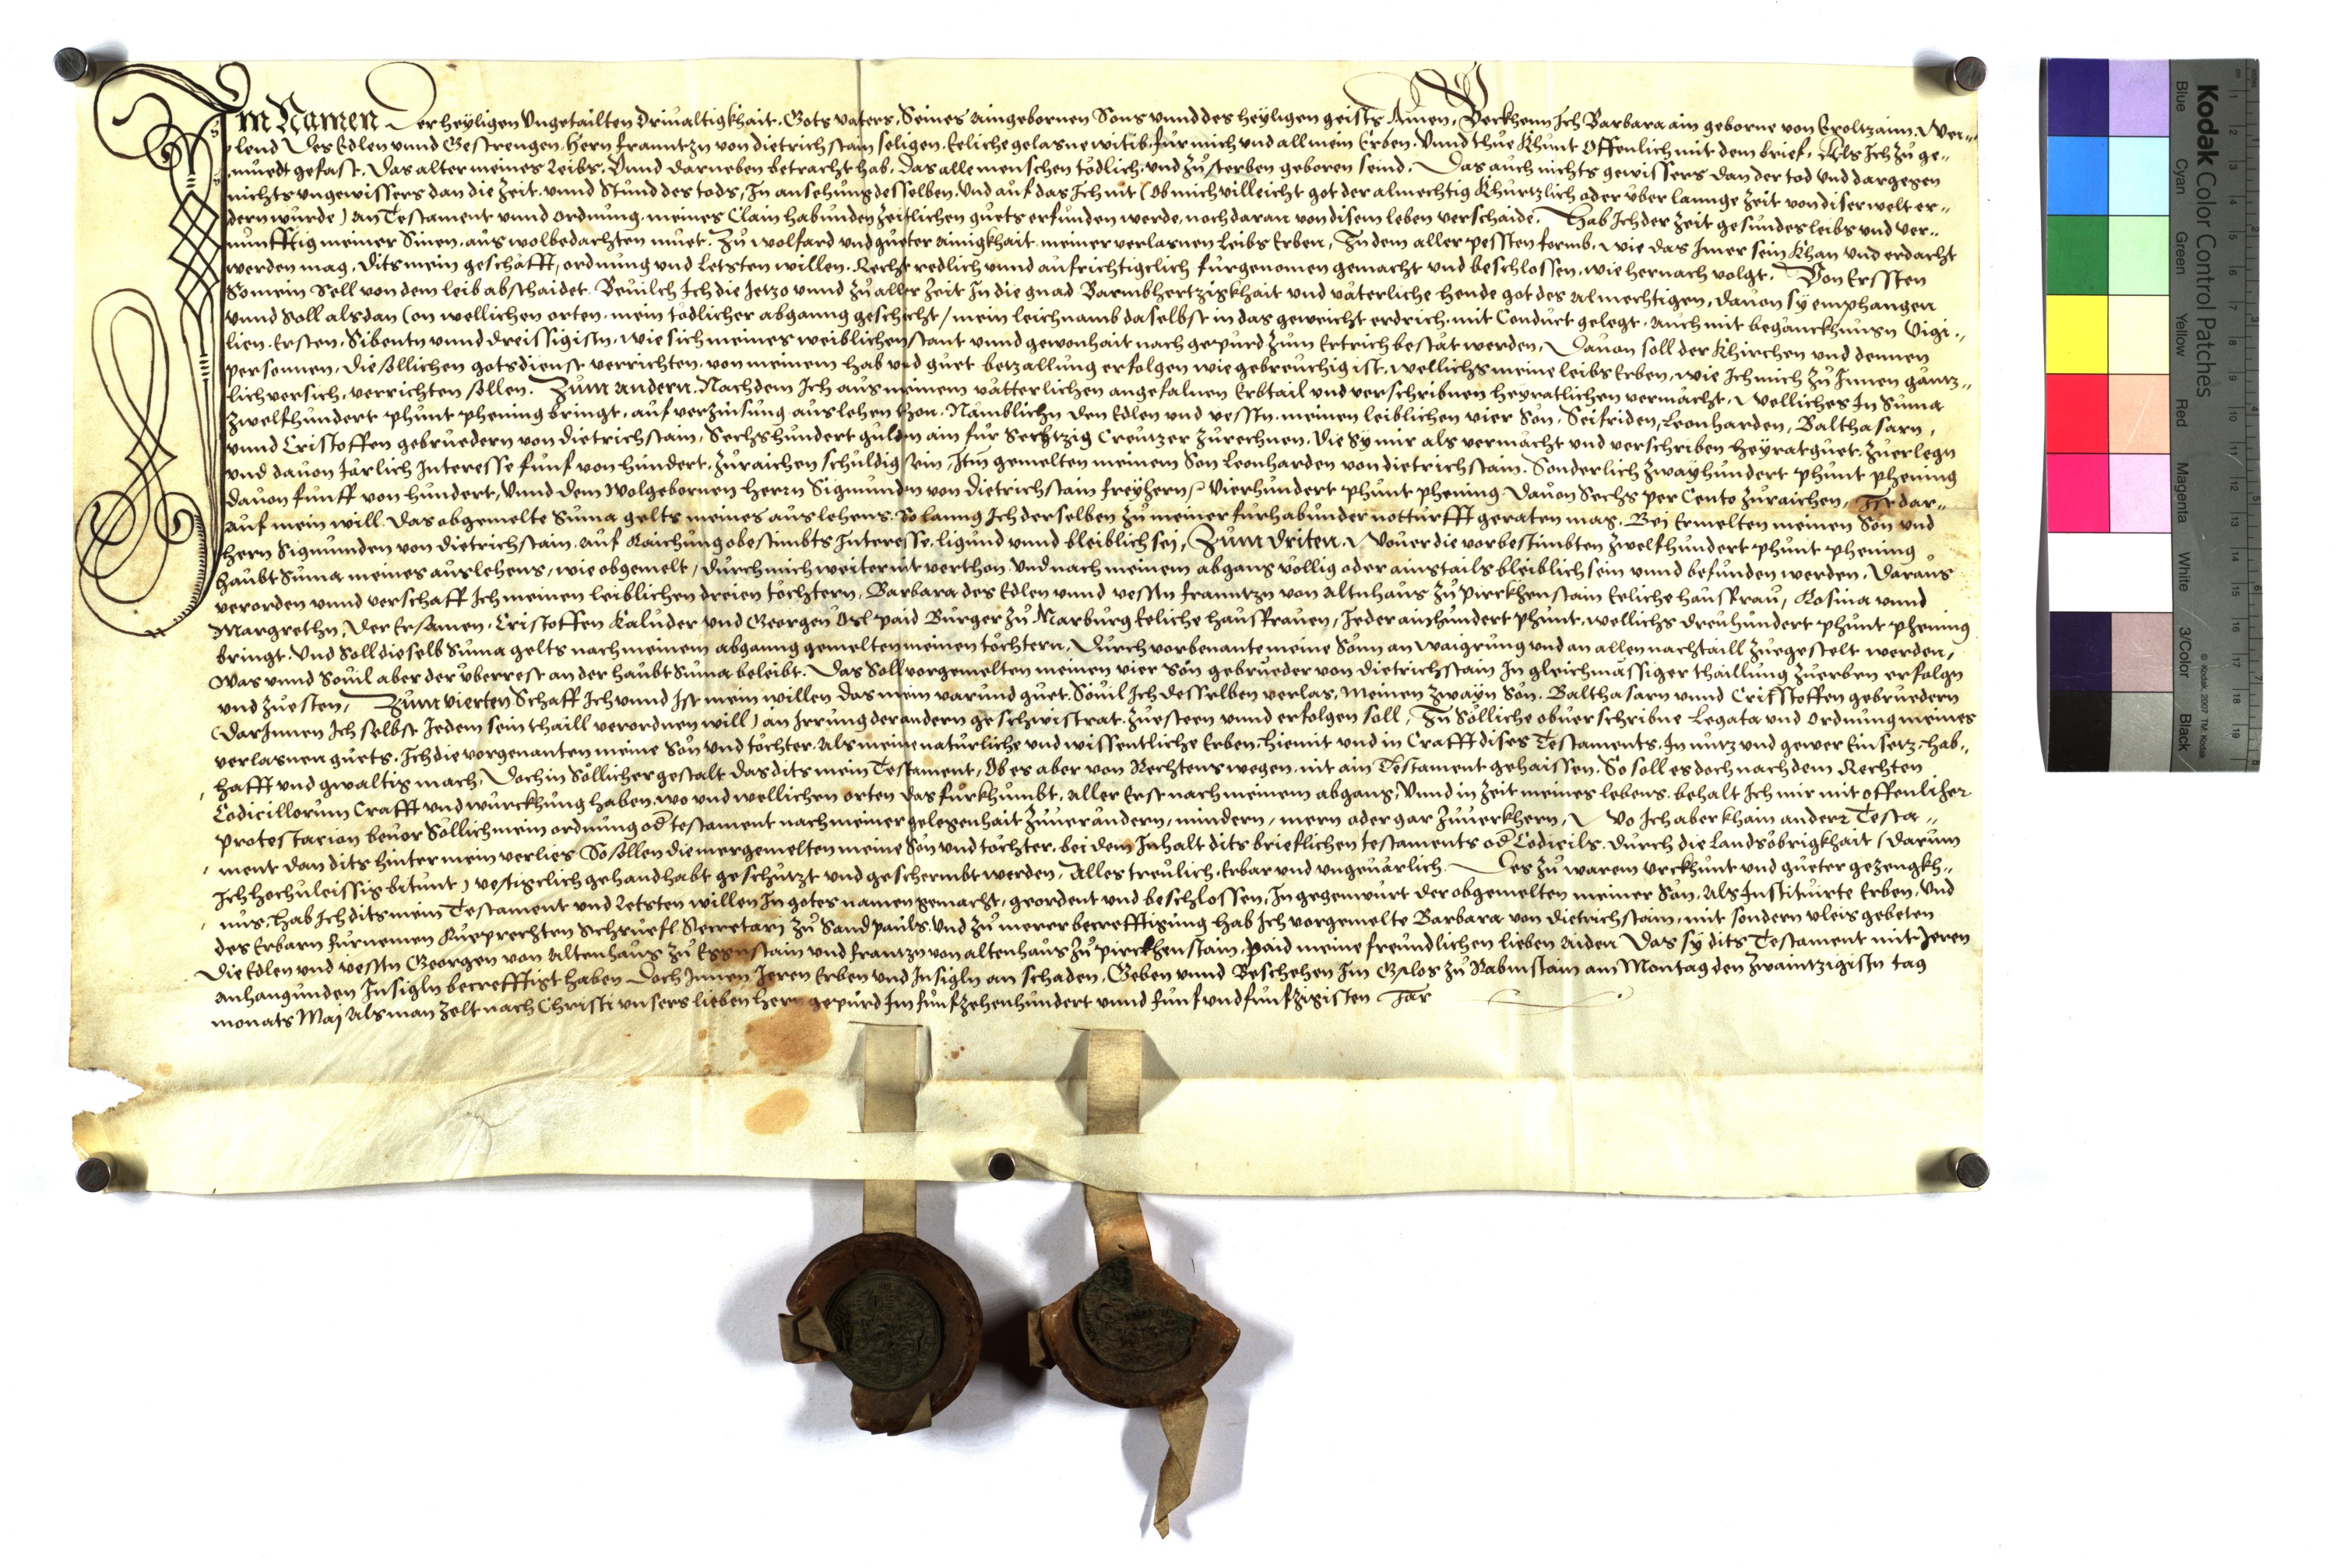 Im Namen Der heyligen Ungetailten Drivaltigkhait. Gots vaters, Seines aingebornen Sons vnnd des heyligen geists Amen, Beckhenn Ich Barbara ain geborne von Eroltzaim, Wei=
lend Des Edlen vnnd Gestrengen, Hern Franntzn von dietrichstain seligen. Eeliche gelasne witib, für mich vnd all mein Erben. Vnnd thue Khunt Offenlich mit dem brief, Als Ich zu ge=
müedt gefast, Das alter meines Leibs, Vnnd darneben betracht hab, das alle menschen tödlich, vnd zu sterben geboren seind. Das auch nichts gewissers dan der tod vnd dargegen
nichts vngewissers dan die zeit vnnd Stund des tods, In ansehung desselben, Vnd auf das Ich nit (ob mich villeicht got der almechtig Khürtzlich oder über lannge zeit von diser welt er=
dern würde) an Testament vnnd ordnung, meines Clain habunden zeitlichen guets erfunden werde, noch daran von disem leben verschaide, Hab Ich der zeit gesundes leibs vnd ver=
nünfftig meiner Sinen, aus wolbedachten muet. Zu wolfard vnd gueter ainigkhait, meiner verlasnen Leibs Erben, In dem aller pessten formb, wie das Imer sein Khan vnd erdacht
werden mag, Dits mein geschäfft, ordnung vnd Letsten willen. Recht redlich vnnd aufrichtigclich fürgenomen gemacht vnd beschlossen, wie hernach volgt. Von Erssten
So mein Sell von dem leib abschaidet. Bevilch Ich die Jetzo vnnd zu aller zeit In die gnad Barmhertzigkhait vnd väterliche hende got des Almechtigen, dauon sy emphangen
vnnd soll alsdan (on wellichen orten, mein tödlicher abganng geschicht) mein leichnamb daselbst in das geweicht erdrich, mit Conduct gelegt, Auch mit begänckhnusn Vigi=
lien, Ersten, Sibentn vnnd dreissigistn, wie sich meines weiblichen stant vnnd gewonhait nach gepürd zum Ertrich bestät werden, Dauon soll der Khirchen vnd dennen
personnen, die sollichen gotsdienst verrichten, von meinem hab vnd guet betzallung erfolgen wie gebreuchig ist, wellichs meine leibs Erben, wie Ich mich zu Innen gäntz=
lich versich, verrichten sollen. Zum andern. Nachdem Ich aus meinem vätterlichen angefalnen Erbtail vnd verschribnen heyratlichen vermächt, Welliches In Suma
zwelfhundert phunt phening bringt, auf verzinsung auslehen thon. Nämblichn den Edlen vnd vesstn, meinen leiblichen vier Sön, Seifriden, Leonharden, Balthasarn,
vnnd Cristoffen gebruedern von dietrichstain, Sechshundert gulden ain für Sechtzig Creutzer zurechnen, die Sy mir als vermächt vnd verschriben heyratguet, zuerlegn
vnd dauon Järlich Interesse fünf von hundert, zuraichen schuldig sein, Itm gemelten meinem Son Leonharden von dietrichstain. Sonderlich zwayhundert phunt phening
dauon fünff von hundert, Vnnd dem Wolgebornen herrn Sigmunden von dietrichstain freyhern &c Vierhundert phunt phening. Dauon Sechs per Cento zuraichen, Ist dar=
auf mein will. das obgemelte Suma gelts meines auslehens, So lanng Ich derselben zu meiner fürhabunder notturfft geraten mag, Bei Ermelten meinen Sön vnd
hern Sigmunden von dietrichstain, auf Raichung obestimbts Interesse, ligund vnnd bleiblich sej, Zum driten. Wouer die vorbestimbten zwelfhundert phunt phening
haubt Suma meines auslehens, wie obgemelt, durch mich weiter nit verthon. Vnd nach meinem abgang völlig oder ainstails bleiblich sein vnnd befunden werden. Daraus
verorden vnnd verschaff Ich meinen leiblichen dreien töchtern, Barbara des Edlen vnnd vesstn franntzn von Altnhaus zu Pirckhenstain Eeliche hausfrau, Rosina vnnd
Margrethn, Der Ersamen, Cristoffen Kaluder vnd Georgen Oxl paid Burger zu Marburg Eeliche hausfrauen, Jeder ainhundert phunt, wellichs dreuhundert phunt phening
bringt. Vnd soll dieselb Suma gelts nach meinem abganng gemelten meinen töchtern, durch vorbenante meine Sönn an waigrung vnd an allen nachtaill zuegestelt werden,
Was vnnd Souil aber der überrest an der haubt Suma beleibt. Das soll vorgemelten meinen vier Sön gebrueder von dietrichstain In gleichmässiger thaillung zuerben erfolgn
vnd zuesten, Zum vierten Schaff Ich vnnd Ist mein willen das mein varund guet, Souil Ich desselben verlas, Meinen zwayn Sön, Balthasarn vnnd Crisstoffen gebruedern
(Dar Innen Ich selbst Jedem sein thaill verordnen will) an Irrung der andern geschwistrat, zuesteen vnnd erfolgen soll, In Sölliche obuerschribne Legata vnd ordnung meines
verlasnen guets, Ich die vorgenanten meine Sön vnd töchter, als meine natürliche vnd wissentliche Erben, hiemit vnd in Crafft dises Testaments, In nutz vnd gewer Einsetz, hab=
hafft vnd gwaltig mach, Doch in Söllicher gestalt das dits mein Testament, Ob es aber von Rechtens wegen, nit ain Testament gehaissen. So soll es doch nach dem Rechten
Codicillorum Crafft vnd würckhung haben, wo vnd wellichen orten das fürkhumbt, aller Erst nach meinem abgang, Vnnd in zeit meines lebens, behalt Ich mir mit offenlicher
protestacion beuor Söllich mein ordnung oder testament nach meiner gelegenhait zuuerändern, mindern, mern oder gar zuuerkhern, Wo Ich aber khain ander Testa=
ment dan dits hinter mein verlies So sollen die mergemelten meine Sön vnd töchter, bei dem Inhalt dits brieflichen testaments oder Codicils, durch die Landsobrigkhait (Darum
Ich hochuleissig bitunt) vestigclich gehandhabt geschützt vnd geschermbt werden, Alles treulich, Erbar vnd vngeuärlich. Des zu warem Vrckhunt vnd gueter gezeugkh=
nus, hab Ich dits mein Testament vnd Letsten willen In gotes namen gemacht, geordent vnd beschlossen, In gegenwurt der obgemelten meiner Sön, als Instituirte Erben, Vnd
des Erbarn fürnemen Rueprechten Schruefl Secretarj zu Sand pauls. Vnd zu merer becrefftigung hab Ich vorgemelte Barbara von dietrichstain, mit sondern vleis gebeten
Die Edlen vnd vesstn Georgen von Altenhaus zu und frantzn von altenhaus zu pirckhenstain, paid meine freundlichen lieben Aiden Das sy dits Testament mit Jeren
anhangunden Insigln becrefftigt haben Doch Innen Jeren Erben vnd Insigln an schaden. Geben vnnd Beschehen Im Gslos zu Rabnstain am Montag den zwaintzigistn tag
monats Maj Als man zelt nach Christi vnsers lieben hern gepürd Im fünfzehenhundert vnnd fünfvndfünfzigisten Jar
Kodak Color Control Patches
Blue Cyan Green Yellow Red Magenta White 3/Color Black
© Kodak, 2007 TM: Kodak